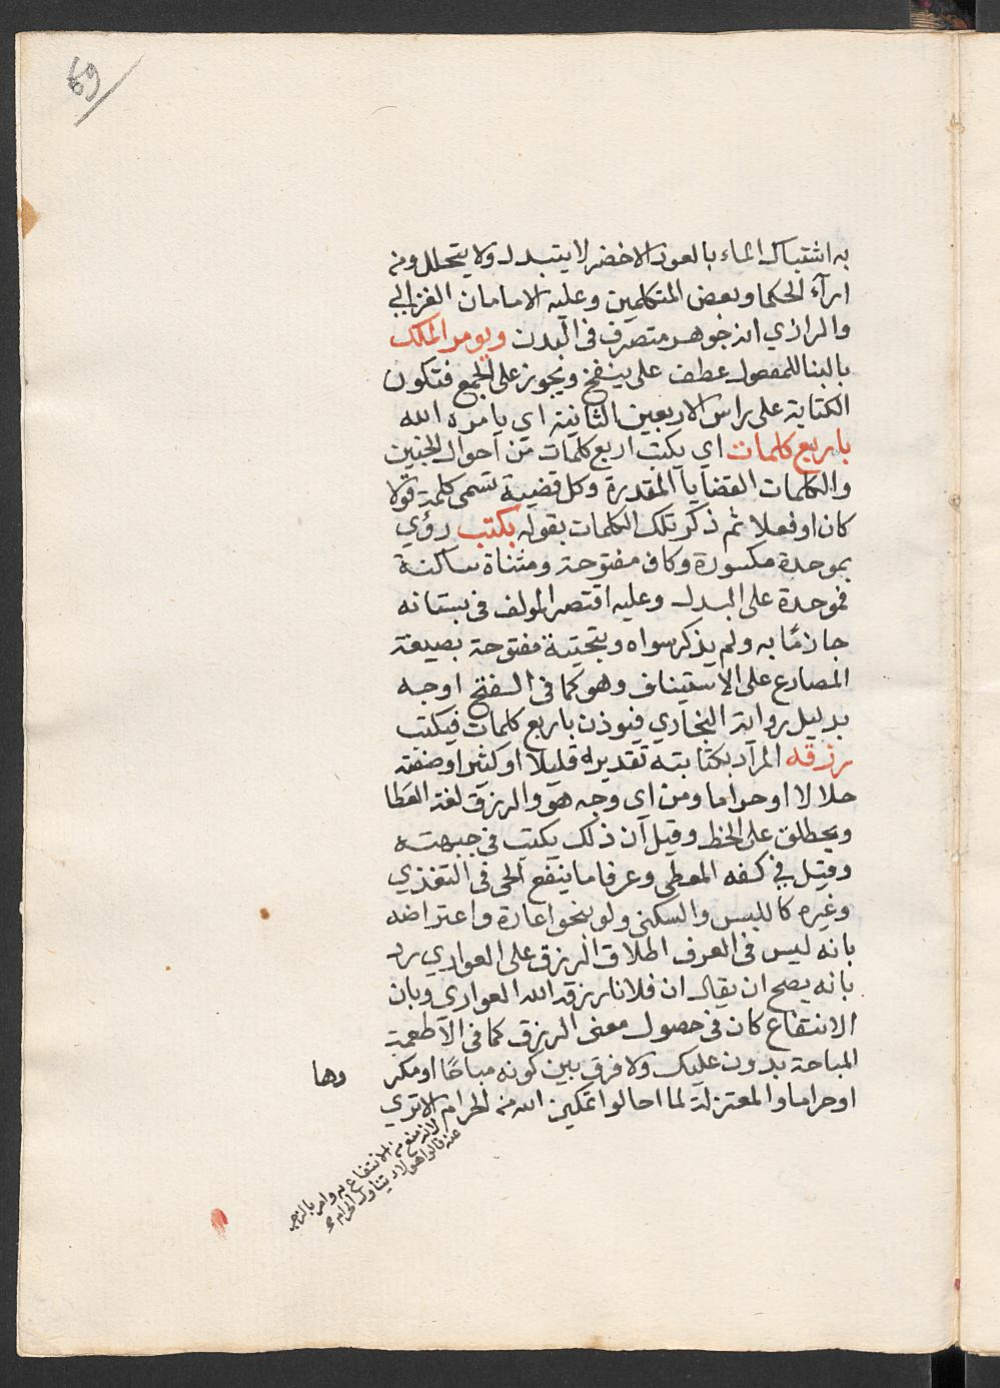 69
به اشتباك الماء بالعود الاخضر لا يتبدل ولا يتحلل ومنه
ارآء الحكما وبعض المتكلمين وعليه الامامان الغزالي
والرازي انه جوهر متصرف في البدن ويومر الملك
بالبنا للمفعول عطف على ينفخ ويجوز على الجمع فتكون
الكتابة على راس الاربعين الثانية اي يامره الله
باربع كلمات اي يكتب اربع كلمات من احوال الجنين
والكلمات القضايا المقدرة وكل قضية تسمى كلمة قولا
كان او فعلا ثم ذكر تلك الكلمات بقوله بكتب رؤي
بموحدة مكسورة وكاف مفتوحة ومثناة ساكنة
فموحدة على البدل وعليه اقتصر المولف في بستانه
جازمًا به ولم يذكر سواه وبتحتية مفتوحة بصيغة
المضارع على الاستيناف وهو كما في الفتح اوجه
بدليل رواية البخاري فيوذن باربع كلمات فيكتب
رزقه المراد بكتابته تقديره قليلا او كثيرا وصفته
حلالا او حراما ومن اي وجه هو والرزق لغة العطا
ويطلق على الحظ وقيل ان ذلك يكتب في جبهته
وقيل في كفه المعطي وعرفا ما ينفع الحي في التغذي
وغيره كاللبس والسكنى ولو بنحو اعارة واعتراضه
بانه ليس في العرف اطلاق الرزق على العواري رد
بانه يصح ان يقال ان فلانا رزقه الله العواري وبان
الانتفاع كان في حصول معنى الرزق كما في الاطعمة
المباحة بدون عليك ولا فرق بين كونه مباحًا او مكر وها
او حراما والمعتزلة لما احالوا تمكين الله من الحرام الا تري
لانه منع من الانتفاع به وامر بالزجر
عنه قالوا هو لا يتناول الحرام